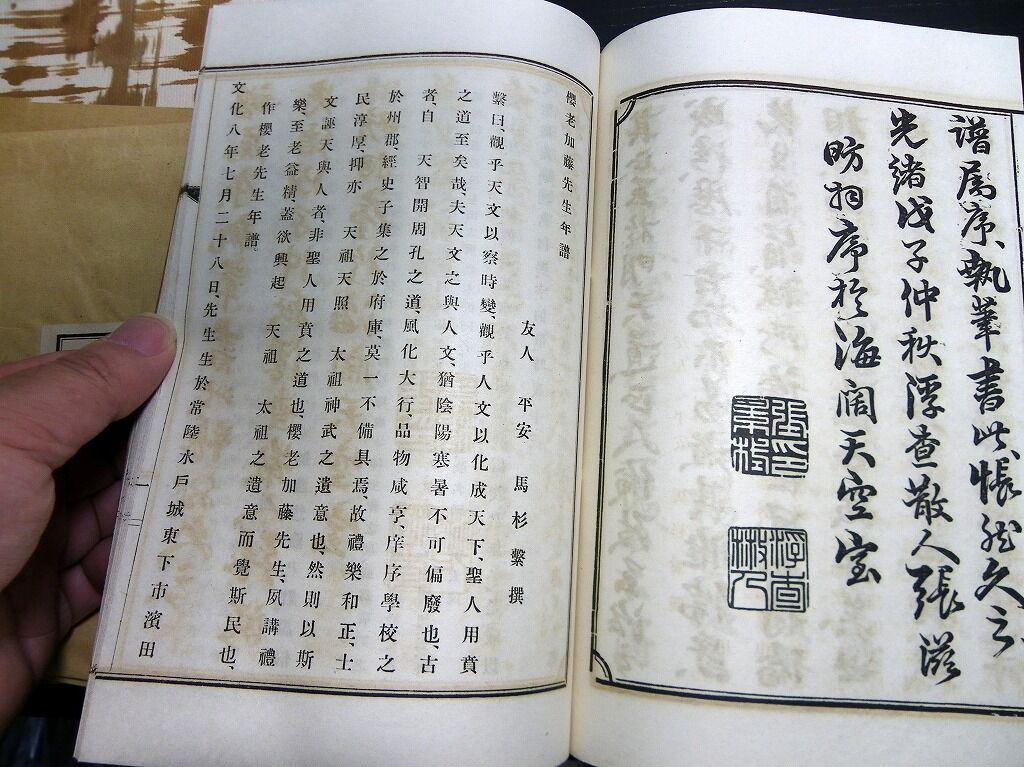 譜属序執筆書此悵然久之
光緒戊子仲秋浮查散人張滋
昉拜序於海闊天空室
櫻老加藤先生年譜
友人 平安 馬杉繫 撰
繫曰、觀乎天文以察時變、觀乎人文以化成天下、聖人用賁
之道至矣哉、夫天文之與人文、猶陰陽寒暑不可偏廢也、古
者、自 天智開周孔之道、風化大行、品物咸亨、庠序學校之
於州郡、經史子集之於府庫、莫一不備具焉、故禮樂和正、士
民淳厚、抑亦 天祖天照 太祖神武之遺意也、然則以斯
文誣天與人者、非聖人用賁之道也、櫻老加藤先生、夙講禮
樂、至老益精、蓋欲興起 天祖 太祖之遺意而覺斯民也、
作櫻老先生年譜。
文化八年七月二十八日、先生生於常陸水戶城東下市濱田